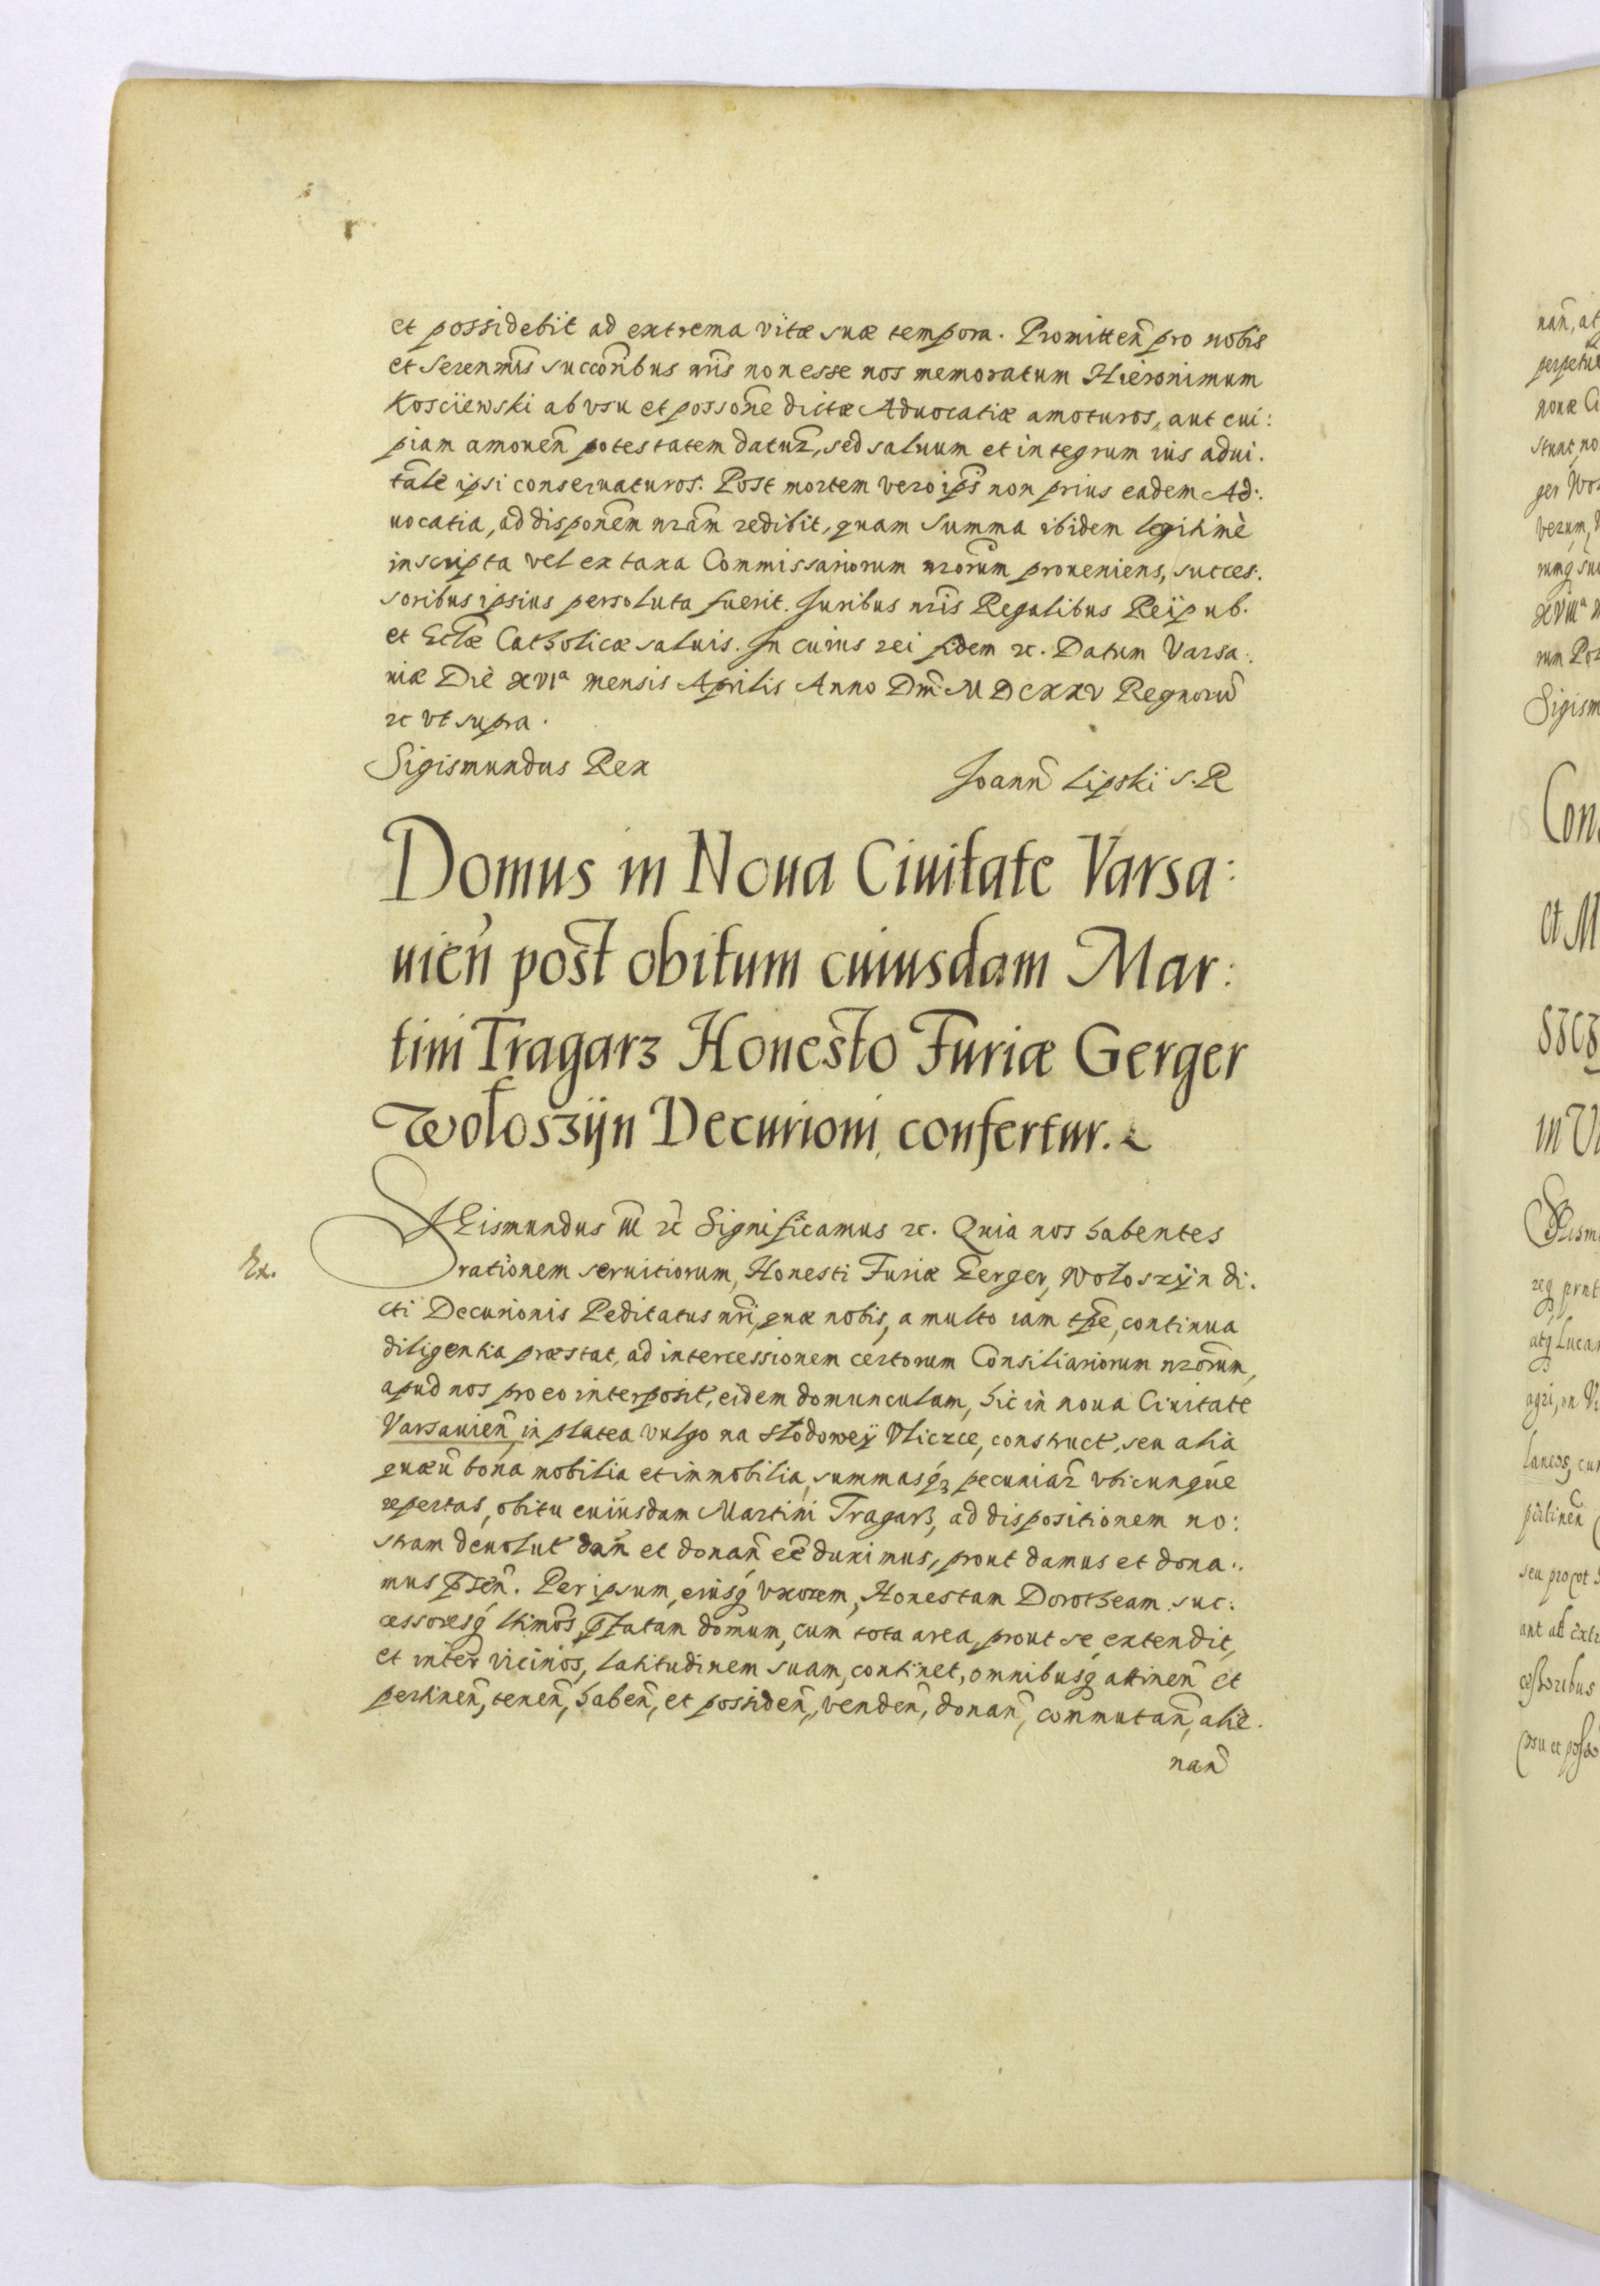 et possidebit ad extrema vitæ suæ tempora. Promitteñ pro nobis
et Serenmĩs succorĩbus nrĩs non esse nos memoratum Hieronimum
Kosciiewski ab vsu et possonẽ dictæ Aduocatiæ amoturos, aut cui:
piam amoueñ potestatem datur̃, sed saluum et integrum ius adui.
talẽ ipsi conseruaturos. Post mortem vero ipsĩ non prius eadem Ad:
uocatia, ad disponẽm nrãm redibit, quam summa ibidem legitimè
inscripta vel ex taxa Commissariorum nrorũm proueniens, succes.
soribus ipsius persoluta fuerit. Juribus nrĩs Regalibus Reipub.
et Eclæ̃ Catholicæ saluis. In cuius rei fidem ꝛc. Datum Varsa:
uiæ Diè XVIᵃ mensis Aprilis Anno Dm̃ MDCXXV Regnorũ
ꝛc vt supra.
Sigismundus Rex
Joanñ Lipski S. R
Domus in Noua Ciuitate Varsa:
uieñ post obitum cuiusdam Mar:
tini Tragarz Honesto Furiæ Gerger
Wołoszÿn Decurioni confertur.
SIGismundus III ꝛc Significamus ꝛc. Quia nos habentes
Ex.
rationem seruitiorum, Honesti Furiæ Gerger, Wołoszÿn di.
cti Decurionis Peditatus nrĩ, quæ nobis, a multo iam tpẽ, continua
diligentia præstat, ad intercessionem certorum Consiliariorum nrorũm,
apud nos pro eo interposit̃, eidem domunculam, hic in noua Ciuitate
Varsauieñ in platea vulgo na Słodoweÿ Vliczce, construct̃, seu alia
quæũ bona mobilia et immobilia, summasq́ꝫ pecuniar̃ vbicunque
repertas, obitu cuiusdam Martini Tragarz, ad dispositionem no:
stram deuolut̃ dañ et donañ eẽ duximus, prout damus et dona:
mus p̃sen̄. Per ipsum, eiusq́ vxorem, Honestam Dorotheam suc:
cessoresq́ ltimõs, p̃fatam domum, cum tota area, prout se extendit,
et inter vicinos, latitudinem suam, continet, omnibusq́ attineñ et
pertineñ, teneñ, habeñ, et possideñ, vendeñ, donañ, commutañ, alie.
nañ